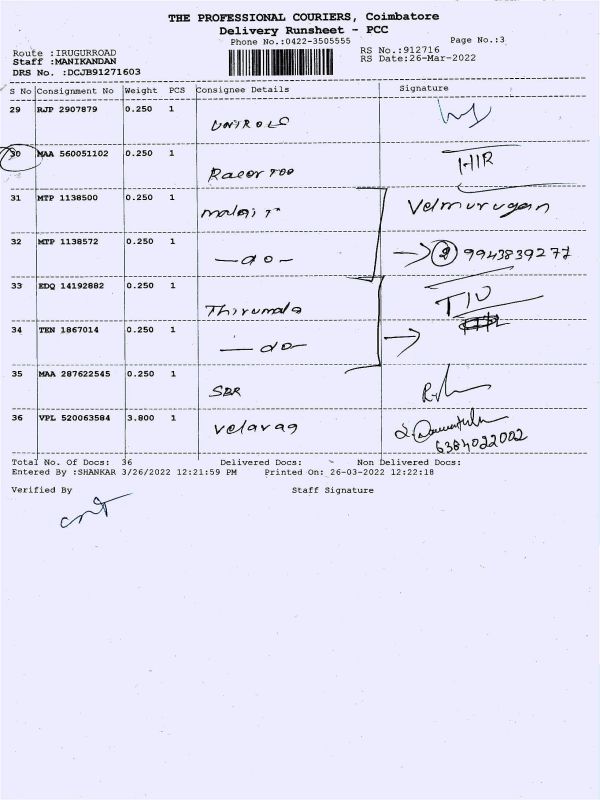 THE PROFESSIONAL COURIERS, Coimbatore
Delivery Runsheet - PCC
Phone No.:0422-3505555 Page No.:3
Route :IRUGURROAD RS No.:912716
Staff :MANIKANDAN RS Date:26-Mar-2022
DRS No. :DCJB91271603
S No Consignment No Weight PCS Consignee Details Signature
29 RJP 2907879 0.250 1
30 MAA 560051102 0.250 1
HIR
31 MTP 1138500 0.250 1
Velmurugan
32 MTP 1138572 0.250 1
-do- 9943839277
33 EDQ 14192882 0.250 1
Thirumala
34 TEN 1867014 0.250 1
-do-
35 MAA 287622545 0.250 1
SBR
36 VPL 520063584 3.800 1
6384022002
Total No. Of Docs: 36 Delivered Docs: Non Delivered Docs:
Entered By :SHANKAR 3/26/2022 12:21:59 PM Printed On: 26-03-2022 12:22:18
Verified By Staff Signature